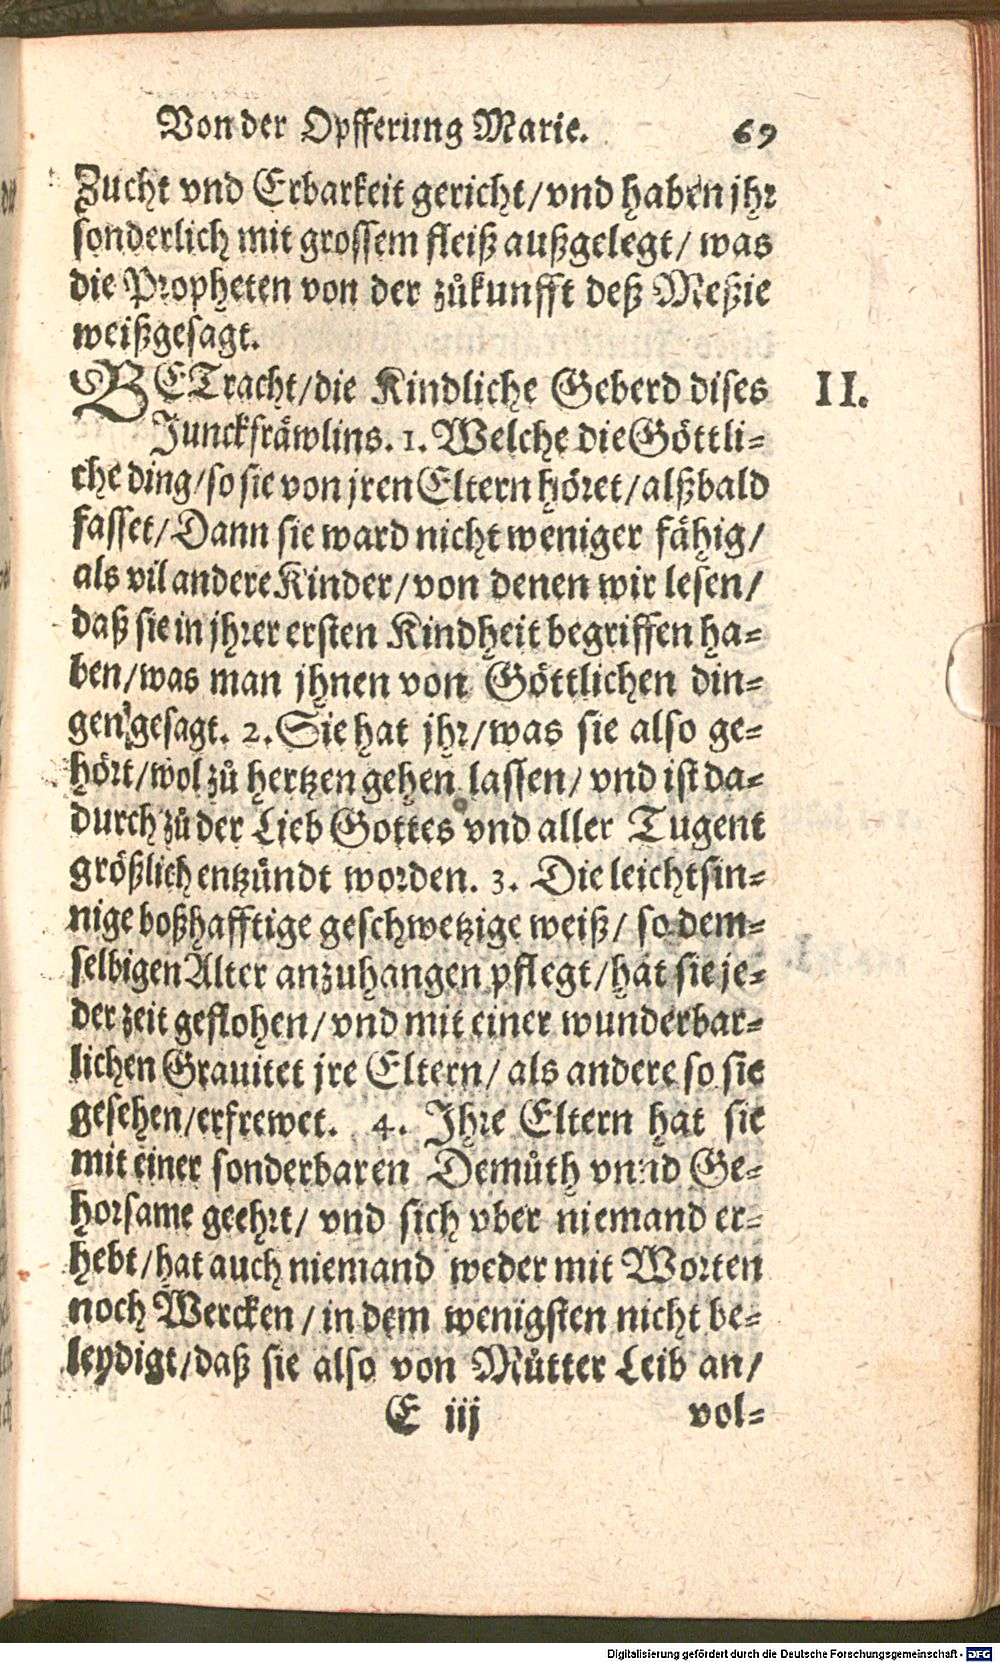 Von der Opfferung Marie. 69
Zucht vnd Erbarkeit gericht/ vnd haben jhr
sonderlich mit grossem fleiß außgelegt/ was
die Propheten von der zůkunfft deß Meßie
weißgesagt.
BETracht/ die Kindliche Geberd dises II.
Junckfräwlins. 1. Welche die Göttli=
che ding/ so sie von jren Eltern höret/ alßbald
fasset/ Dann sie ward nicht weniger fähig/
als vil andere Kinder/ von denen wir lesen/
daß sie in jhrer ersten Kindheit begriffen ha=
ben/ was man jhnen von Göttlichen din=
gen gesagt. 2. Sie hat jhr/ was sie also ge=
hört/ wol zů hertzen gehen lassen/ vnd ist da=
durch zů der Lieb Gottes vnd aller Tugent
größlich entzündt worden. 3. Die leichtsin=
nige boßhafftige geschwetzige weiß/ so dem=
selbigen Alter anzuhangen pflegt/ hat sie je=
der zeit geflohen/ vnd mit einer wunderbar=
lichen Grauitet jre Eltern/ als andere so sie
gesehen/ erfrewet. 4. Ihre Eltern hat sie
mit einer sonderbaren Demůth vnnd Ge=
horsame geehrt/ vnd sich vber niemand er=
hebt/ hat auch niemand weder mit Worten
noch Wercken/ in dem wenigsten nicht be=
leydigt/ daß sie also von Můtter Leib an/
E iij vol=
Digitalisierung gefördert durch die Deutsche Forschungsgemeinschaft - DFG